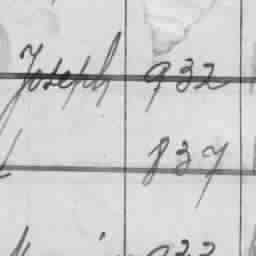 Joseph 932
837